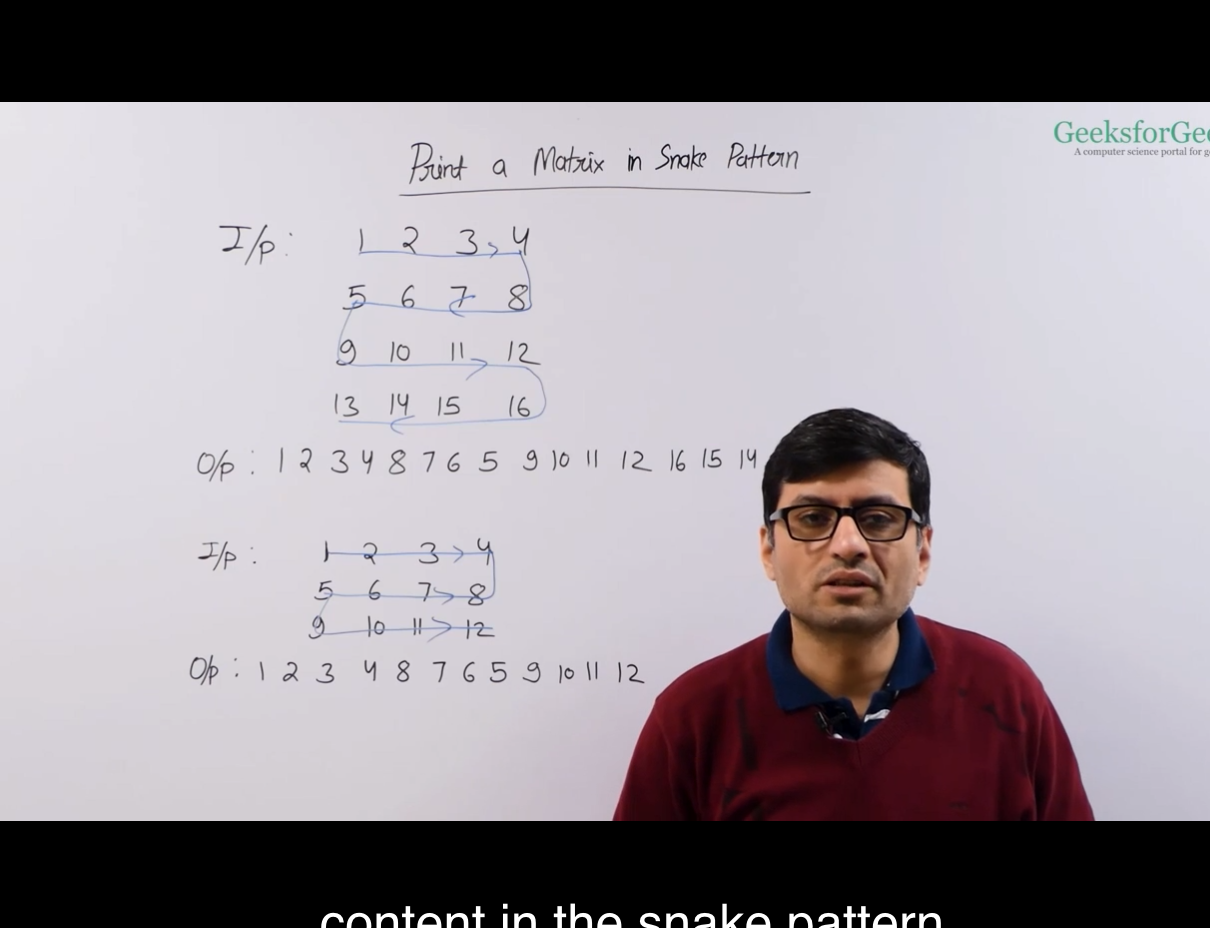 GeeksforGee
A computer science portal for g
Print a Matrix in Snake Pattern
I/p : 1 2 3 4
5 6 7 8
9 10 11 12
13 14 15 16
O/p : 1 2 3 4 8 7 6 5 9 10 11 12 16 15 14
I/p : 1 2 3 4
5 6 7 8
9 10 11 12
O/p : 1 2 3 4 8 7 6 5 9 10 11 12
content in the snake pattern